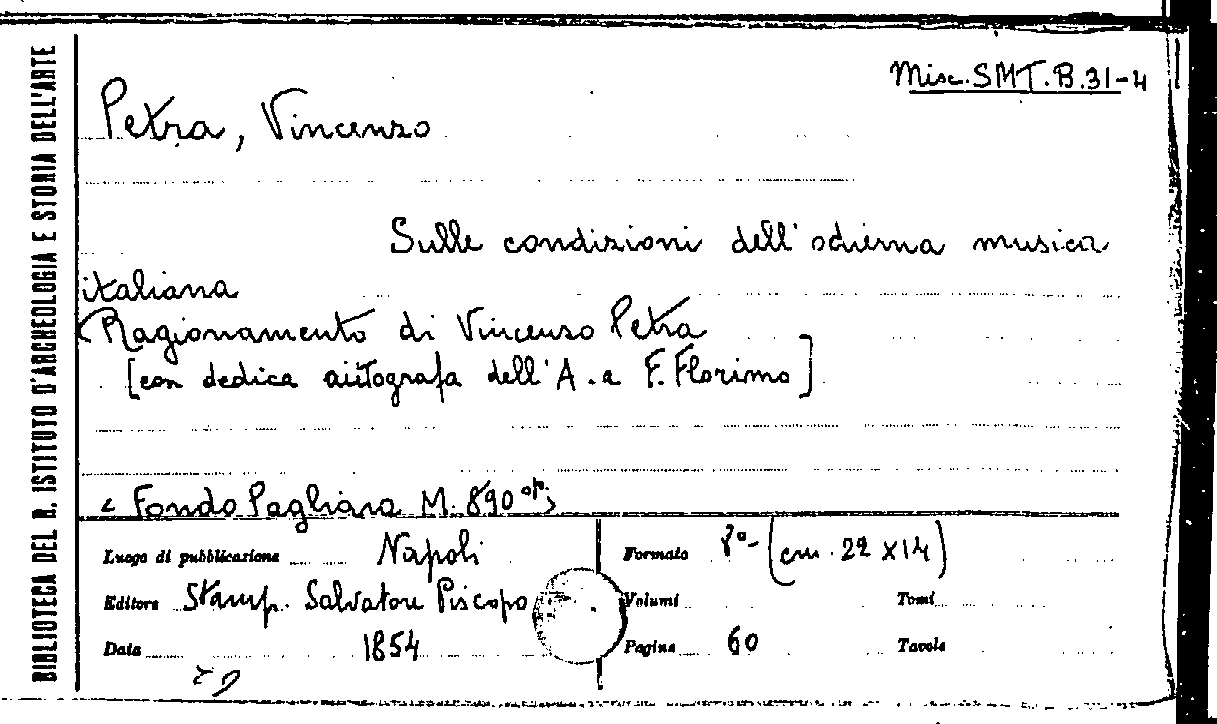 BIBLIOTECA DEL R. ISTITUTO D'ARCHEOLOGIA E STORIA DELL'ARTE
Misc. SMT. B. 31-4
Petra, Vincenzo
Sulle condizioni dell'odierna musica
italiana
Ragionamento di Vincenzo Petra
[con dedica autografa dell'A. a F. Florimo]
< Fondo Pagliara M. 890 op. >
Luogo di pubblicazione Napoli Formato 8°- (cm. 22 x 14)
Editore Stamp. Salvatore Piscopo Volumi Tomi
Data 1854 Pagine 60 Tavole